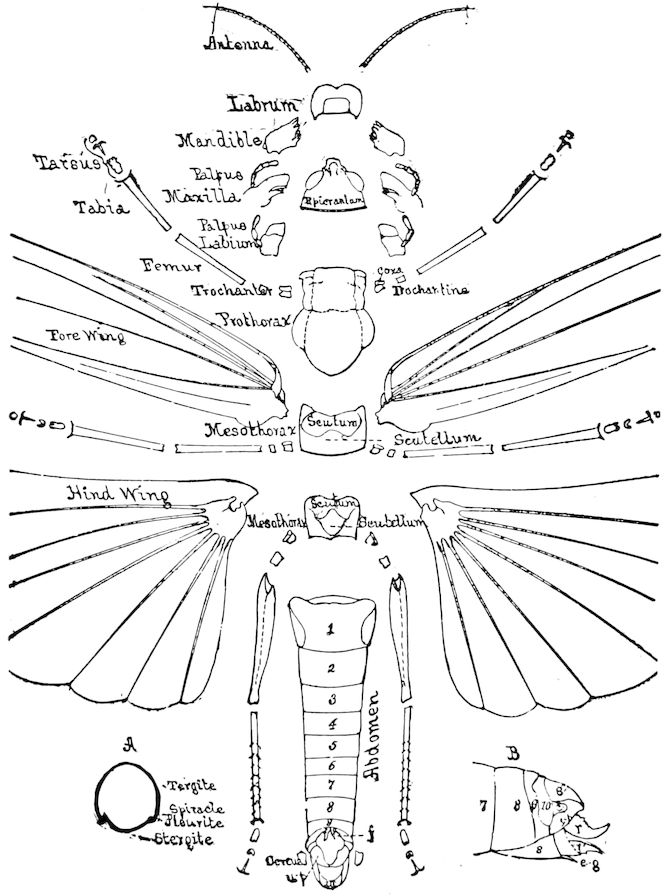 Antenna
Labrum
Mandible
Tarsus
Palpus
Maxilla
Epicranium
Tabia
Palpus
Labium
Femur
coxa
Trochanter
Trochantine
Prothorax
Fore Wing
Scutum
Mesothorax
Scutellum
Hind Wing
Scutum
Mesothorax
Scutellum
1
2
3
4
5
6
7
8
9
Abdomen
A
Tergite
Spiracle
Pleurite
Stergite
f
Dorcus
up
B
7
8
9
10
8
e-g